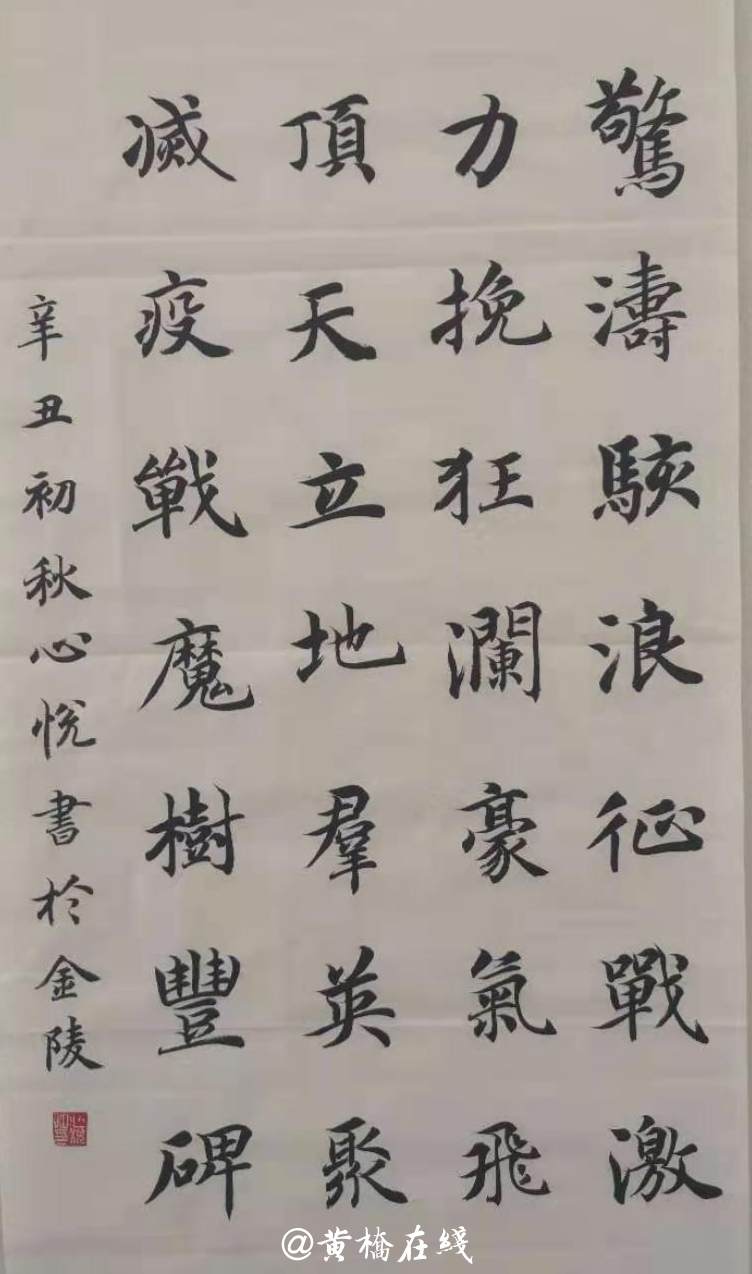 驚濤駭浪征戰激
力挽狂瀾豪氣飛
頂天立地羣英聚
滅疫戰魔樹豐碑
辛丑初秋心悅書於金陵
@黄橋在綫